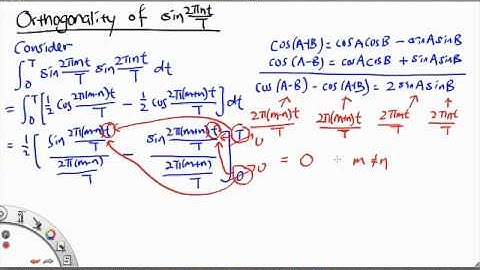 Orthogonality of sin 2πnt/T
Consider
∫₀ᵀ sin 2πmt/T sin 2πnt/T dt
= ∫₀ᵀ [½ cos 2π(m-n)t/T - ½ cos 2π(m+n)t/T] dt
= ½ [ sin 2π(m-n)t/T / 2π(m-n)/T - sin 2π(m+n)t/T / 2π(m+n)/T ]₀ᵀ
cos(A+B) = cosAcosB - sinAsinB
cos(A-B) = cosAcosB + sinAsinB
cos(A-B) - cos(A+B) = 2 sinAsinB
2π(m-n)t/T 2π(m+n)t/T 2πmt/T 2πnt/T
0
0
= 0 m≠n